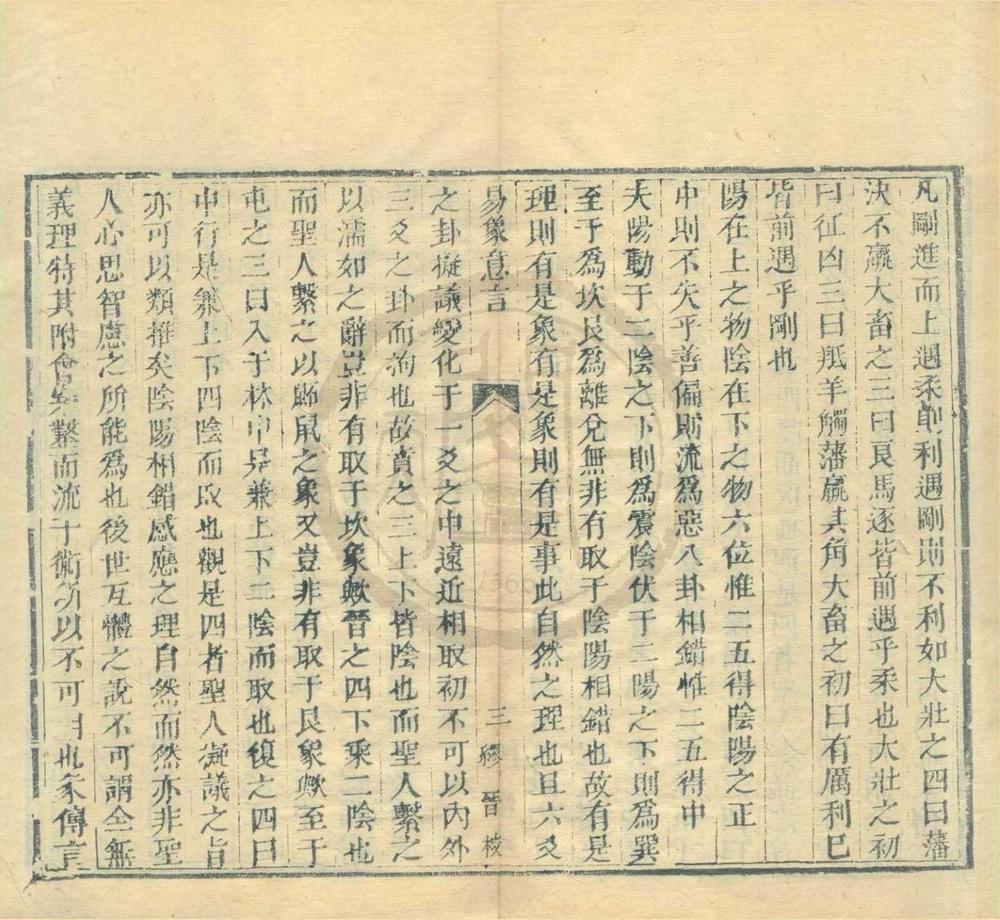 凡剛進而上遇柔則利遇剛則不利如大壯之四曰藩
決不羸大畜之三曰良馬逐皆前遇乎柔也大壯之初
曰征凶三曰羝羊觸藩羸其角大畜之初曰有厲利巳
皆前遇乎剛也
陽在上之物陰在下之物六位惟二五得陰陽之正
中則不失乎善偏則流爲惡八卦相錯惟二五得中
夫陽動于二陰之下則爲震陰伏于二陽之下則爲巽
至于爲坎艮爲離兌無非有取于陰陽相錯也故有是
理則有是象有是象則有是事此自然之理也且六爻
易象意言
三 繆晉校
之卦擬議變化于一爻之中遠近相取初不可以內外
三爻之卦而拘也故賁之三上下皆陰也而聖人繫之
以濡如之辭豈非有取于坎象歟晉之四下乘二陰也
而聖人繫之以鼫鼠之象又豈非有取于艮象歟至于
屯之三曰入于林中是兼上下三陰而取也復之四曰
中行是兼上下四陰而取也觀是四者聖人凝議之旨
亦可以類推矣陰陽相錯感應之理自然而然亦非聖
人心思智慮之所能爲也後世互體之說不可謂全無
義理特其附會穿鑿而流于術所以不可用也彖傳言